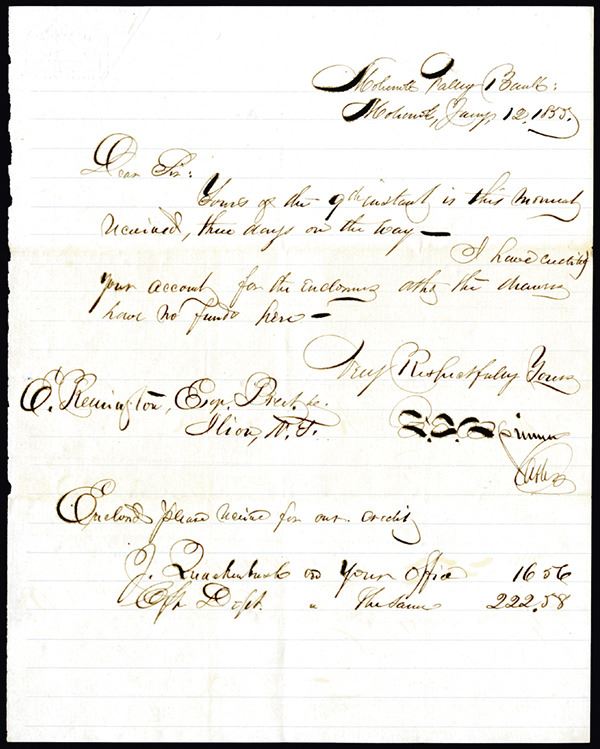 Mohawk Valley Bank:
Mohawk, Jany. 12, 1855,
Dear Sir:
Yours of the 9th instant is this moment
received, three days on the way —
I have credited
your account for the enclosures altho the drawers
have no funds here —
Very Respectfully Yours
F. E. Spinner
Cash.
E. Remington, Esqr. Prest. &c.
Ilion, N. Y.
Enclosed please receive for our credit
J. Quackenbush on your office 16.56
" The Same 222.58